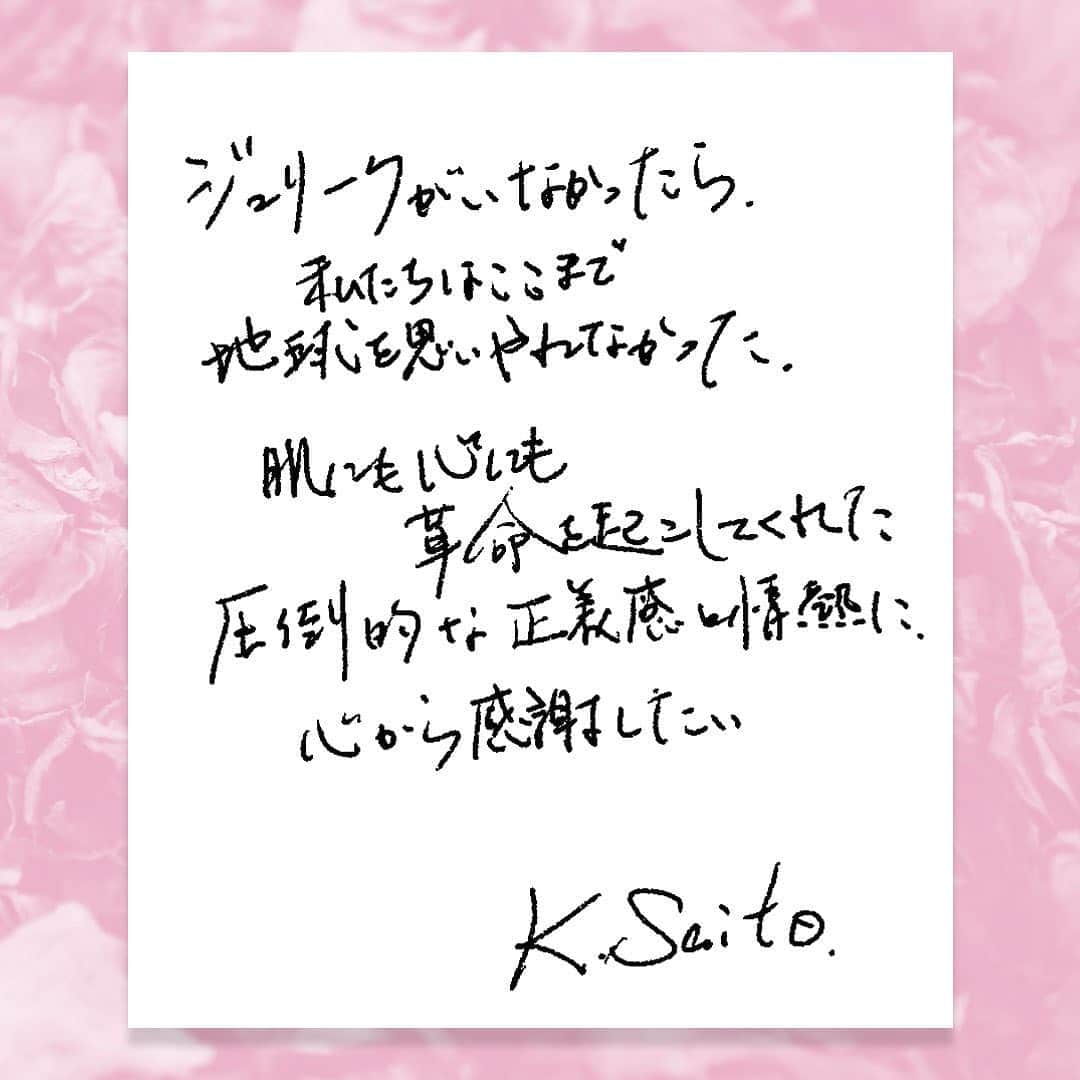 ジュリークがいなかったら.
私たちはここまで
地球を思いやれなかった.
肌にも心にも
革命を起こしてくれた
圧倒的な正義感と情熱に.
心から感謝したい
K.Saito.